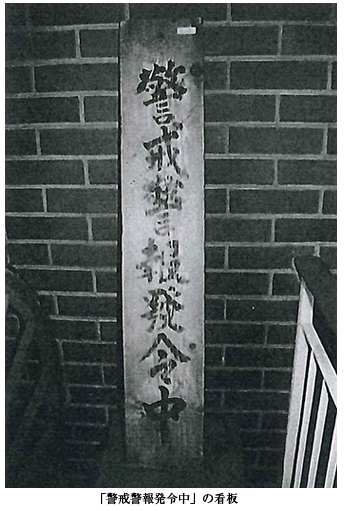 警戒警報発令中
「警戒警報発令中」の看板